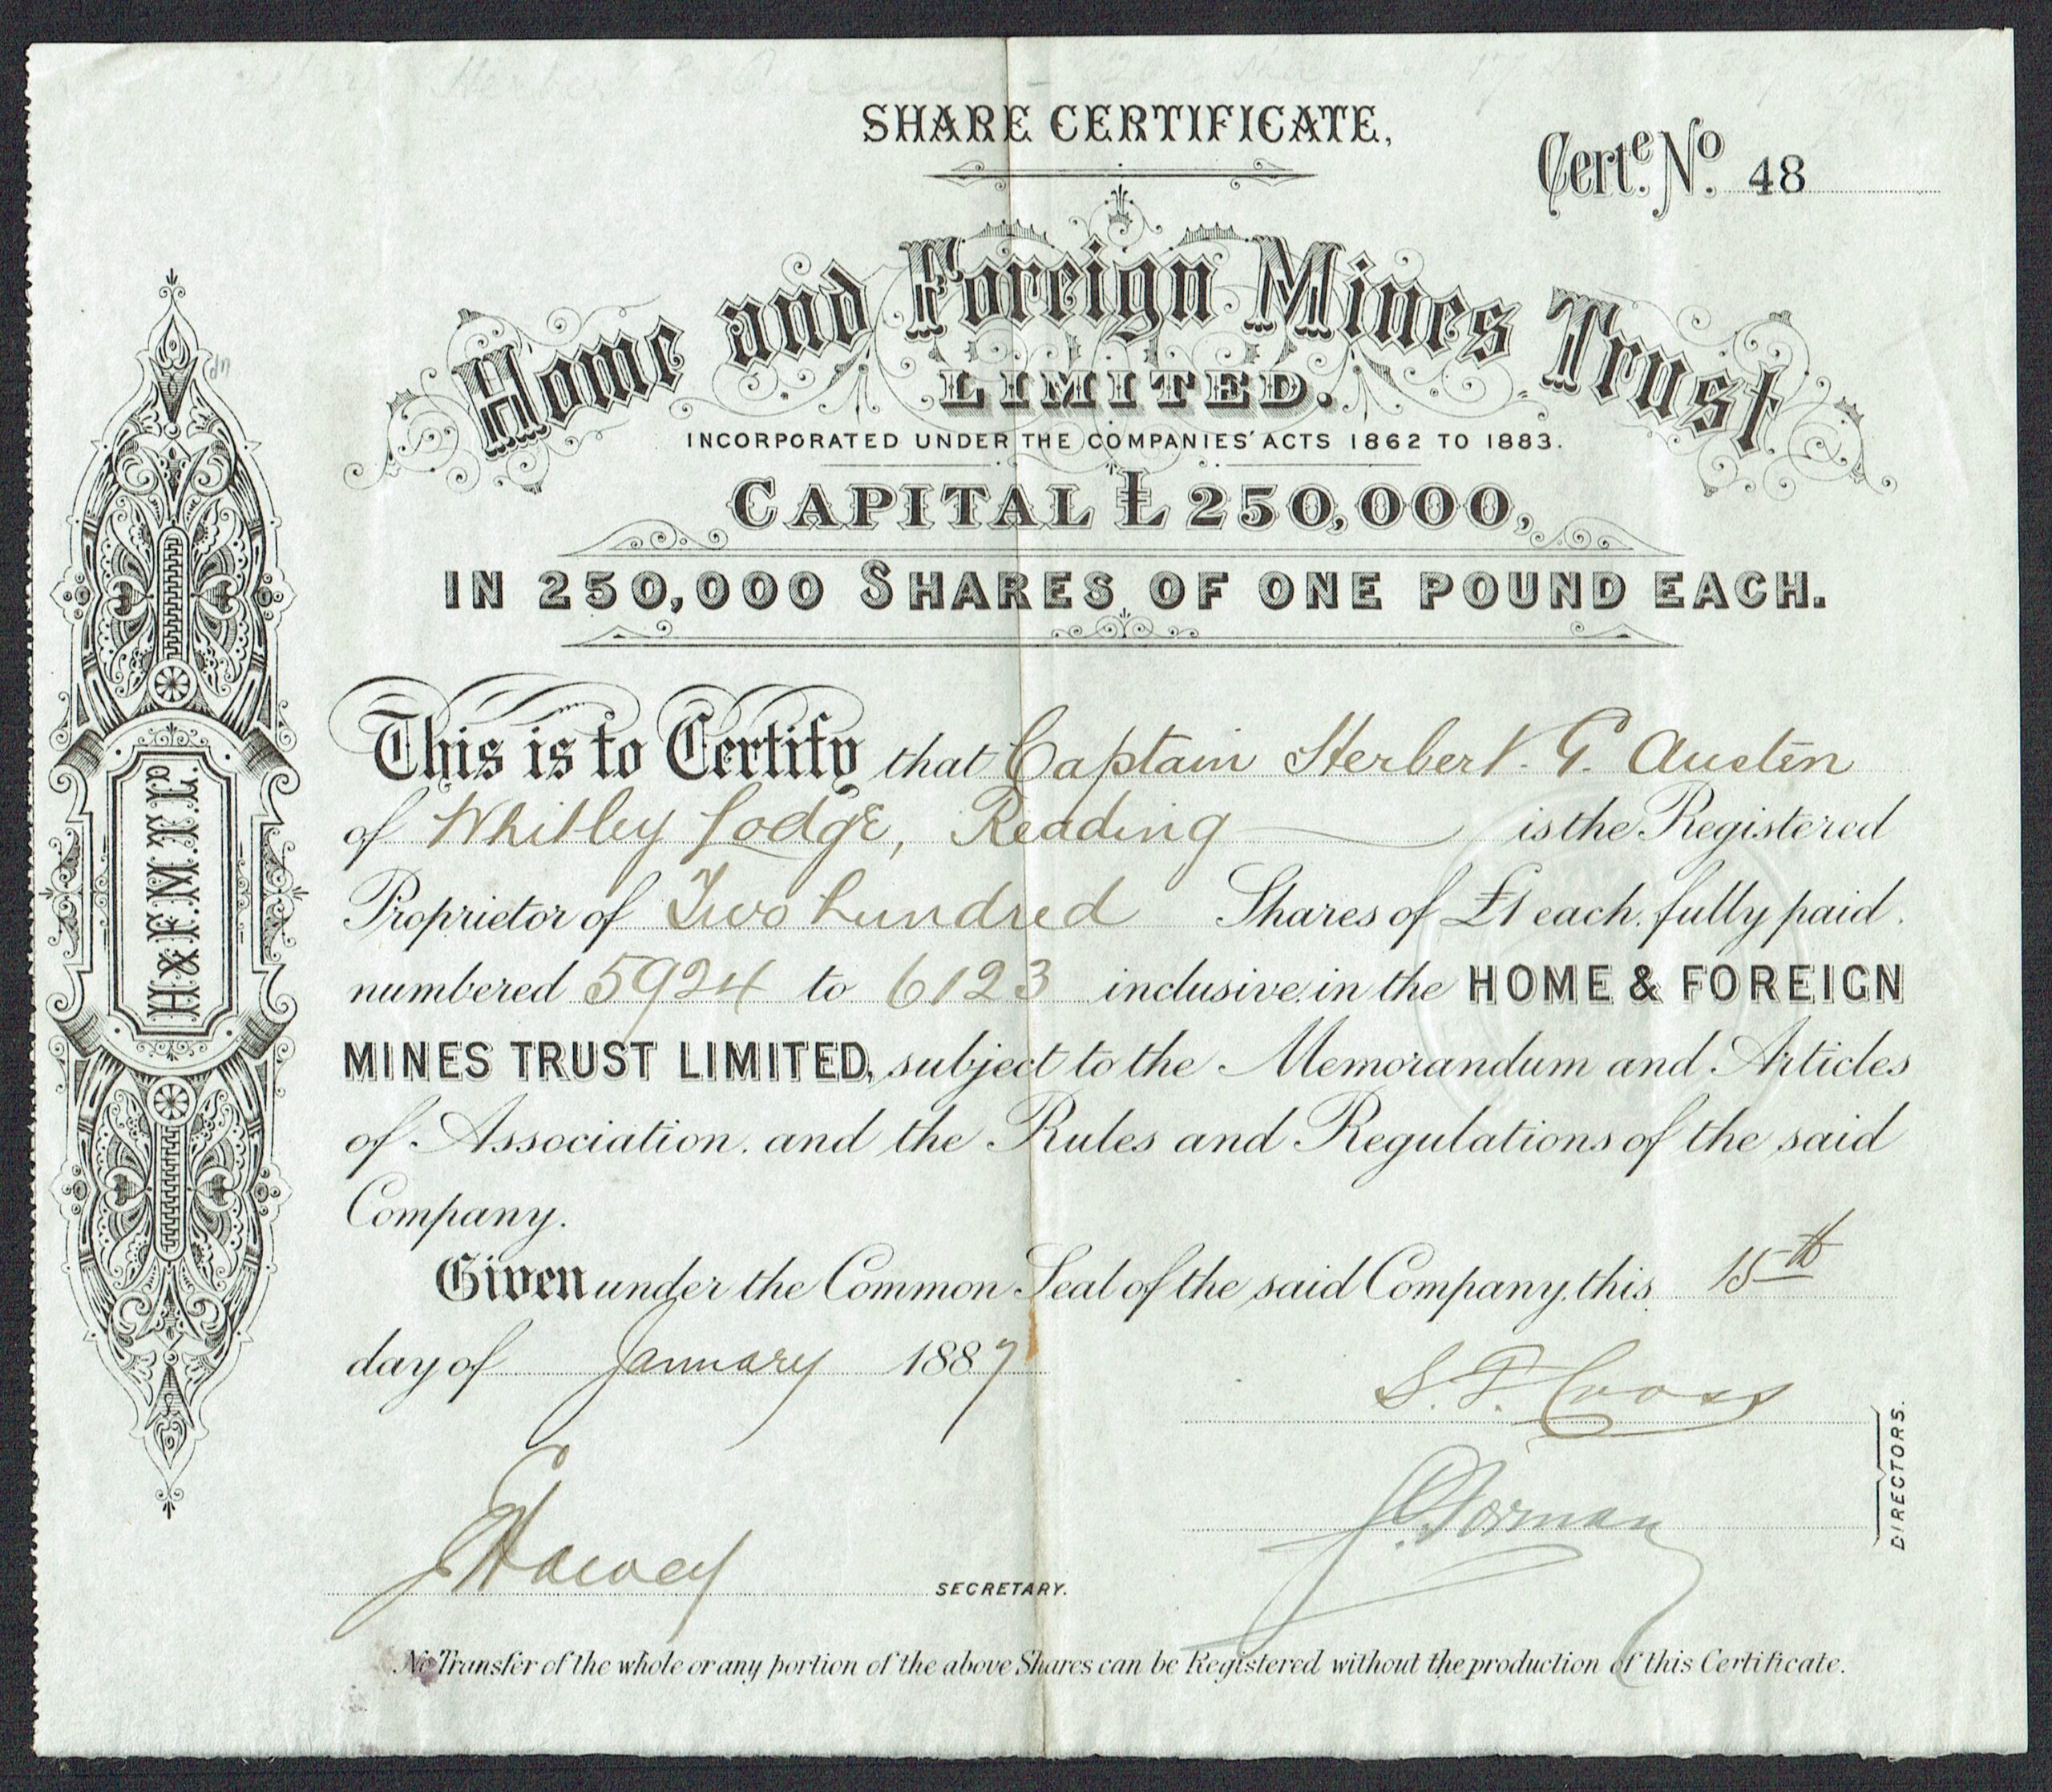 SHARE CERTIFICATE,
Certe. No. 48
Home and Foreign Mines Trust
LIMITED.
INCORPORATED UNDER THE COMPANIES' ACTS 1862 TO 1883.
CAPITAL £250,000,
IN 250,000 SHARES OF ONE POUND EACH.
H & F. M. T. Ld.
This is to Certify that Captain Herbert. G. Austen
of Whitley Lodge, Reading is the Registered
Proprietor of Two hundred Shares of £1 each. fully paid.
numbered 5924 to 6123 inclusive. in the HOME & FOREIGN
MINES TRUST LIMITED, subject to the Memorandum and Articles
of Association. and the Rules and Regulations of the said
Company.
Given under the Common Seal of the said Company, this 15th
day of January 1887
S. F. Cross
Forman
DIRECTORS.
J Harvey
SECRETARY.
No Transfer of the whole or any portion of the above Shares can be Registered without the production of this Certificate.